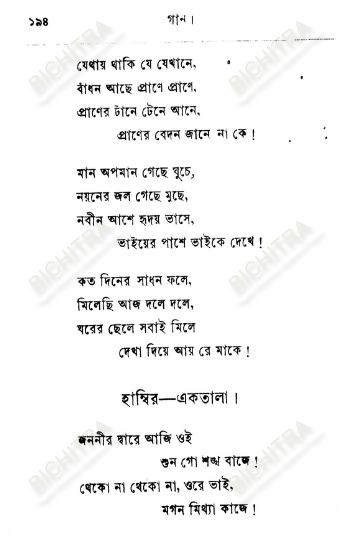 ১৯৪ গান।
যেথায় থাকি যে যেখানে,
বাঁধন আছে প্রাণে প্রাণে,
প্রাণের টানে টেনে আনে,
প্রাণের বেদন জানে না কে !
মান অপমান গেছে ঘুচে,
নয়নের জল গেছে মুছে,
নবীন আশে হৃদয় ভাসে,
ভাইয়ের পাশে ভাইকে দেখে !
কত দিনের সাধন ফলে,
মিলেছি আজ দলে দলে,
ঘরের ছেলে সবাই মিলে
দেখা দিয়ে আয় রে মাকে !
হাম্বির—একতালা।
জননীর দ্বারে আজি ওই
শুন গো শঙ্খ বাজে !
থেকো না থেকো না, ওরে ভাই,
মগন মিথ্যা কাজে !
BICHITRA
BICHITRA
BICHITRA
BICHITRA
BICHITRA
BICHITRA